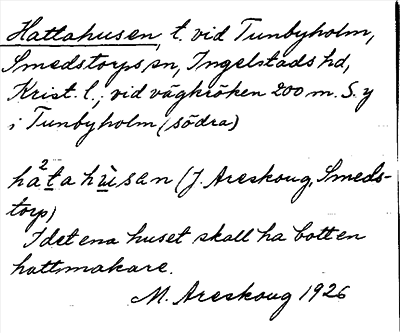 Hattahusen, t. vid Tunbyholm,
Smedstorps sn, Ingelstads hd,
Krist. l.; vid vägkröken 200 m. S. y
i Tunbyholm (södra)
ha²ta hùsan (J. Areskoug, Smeds-
torp)
I det ena huset skall ha bott en
hattmakare.
M. Areskoug 1926